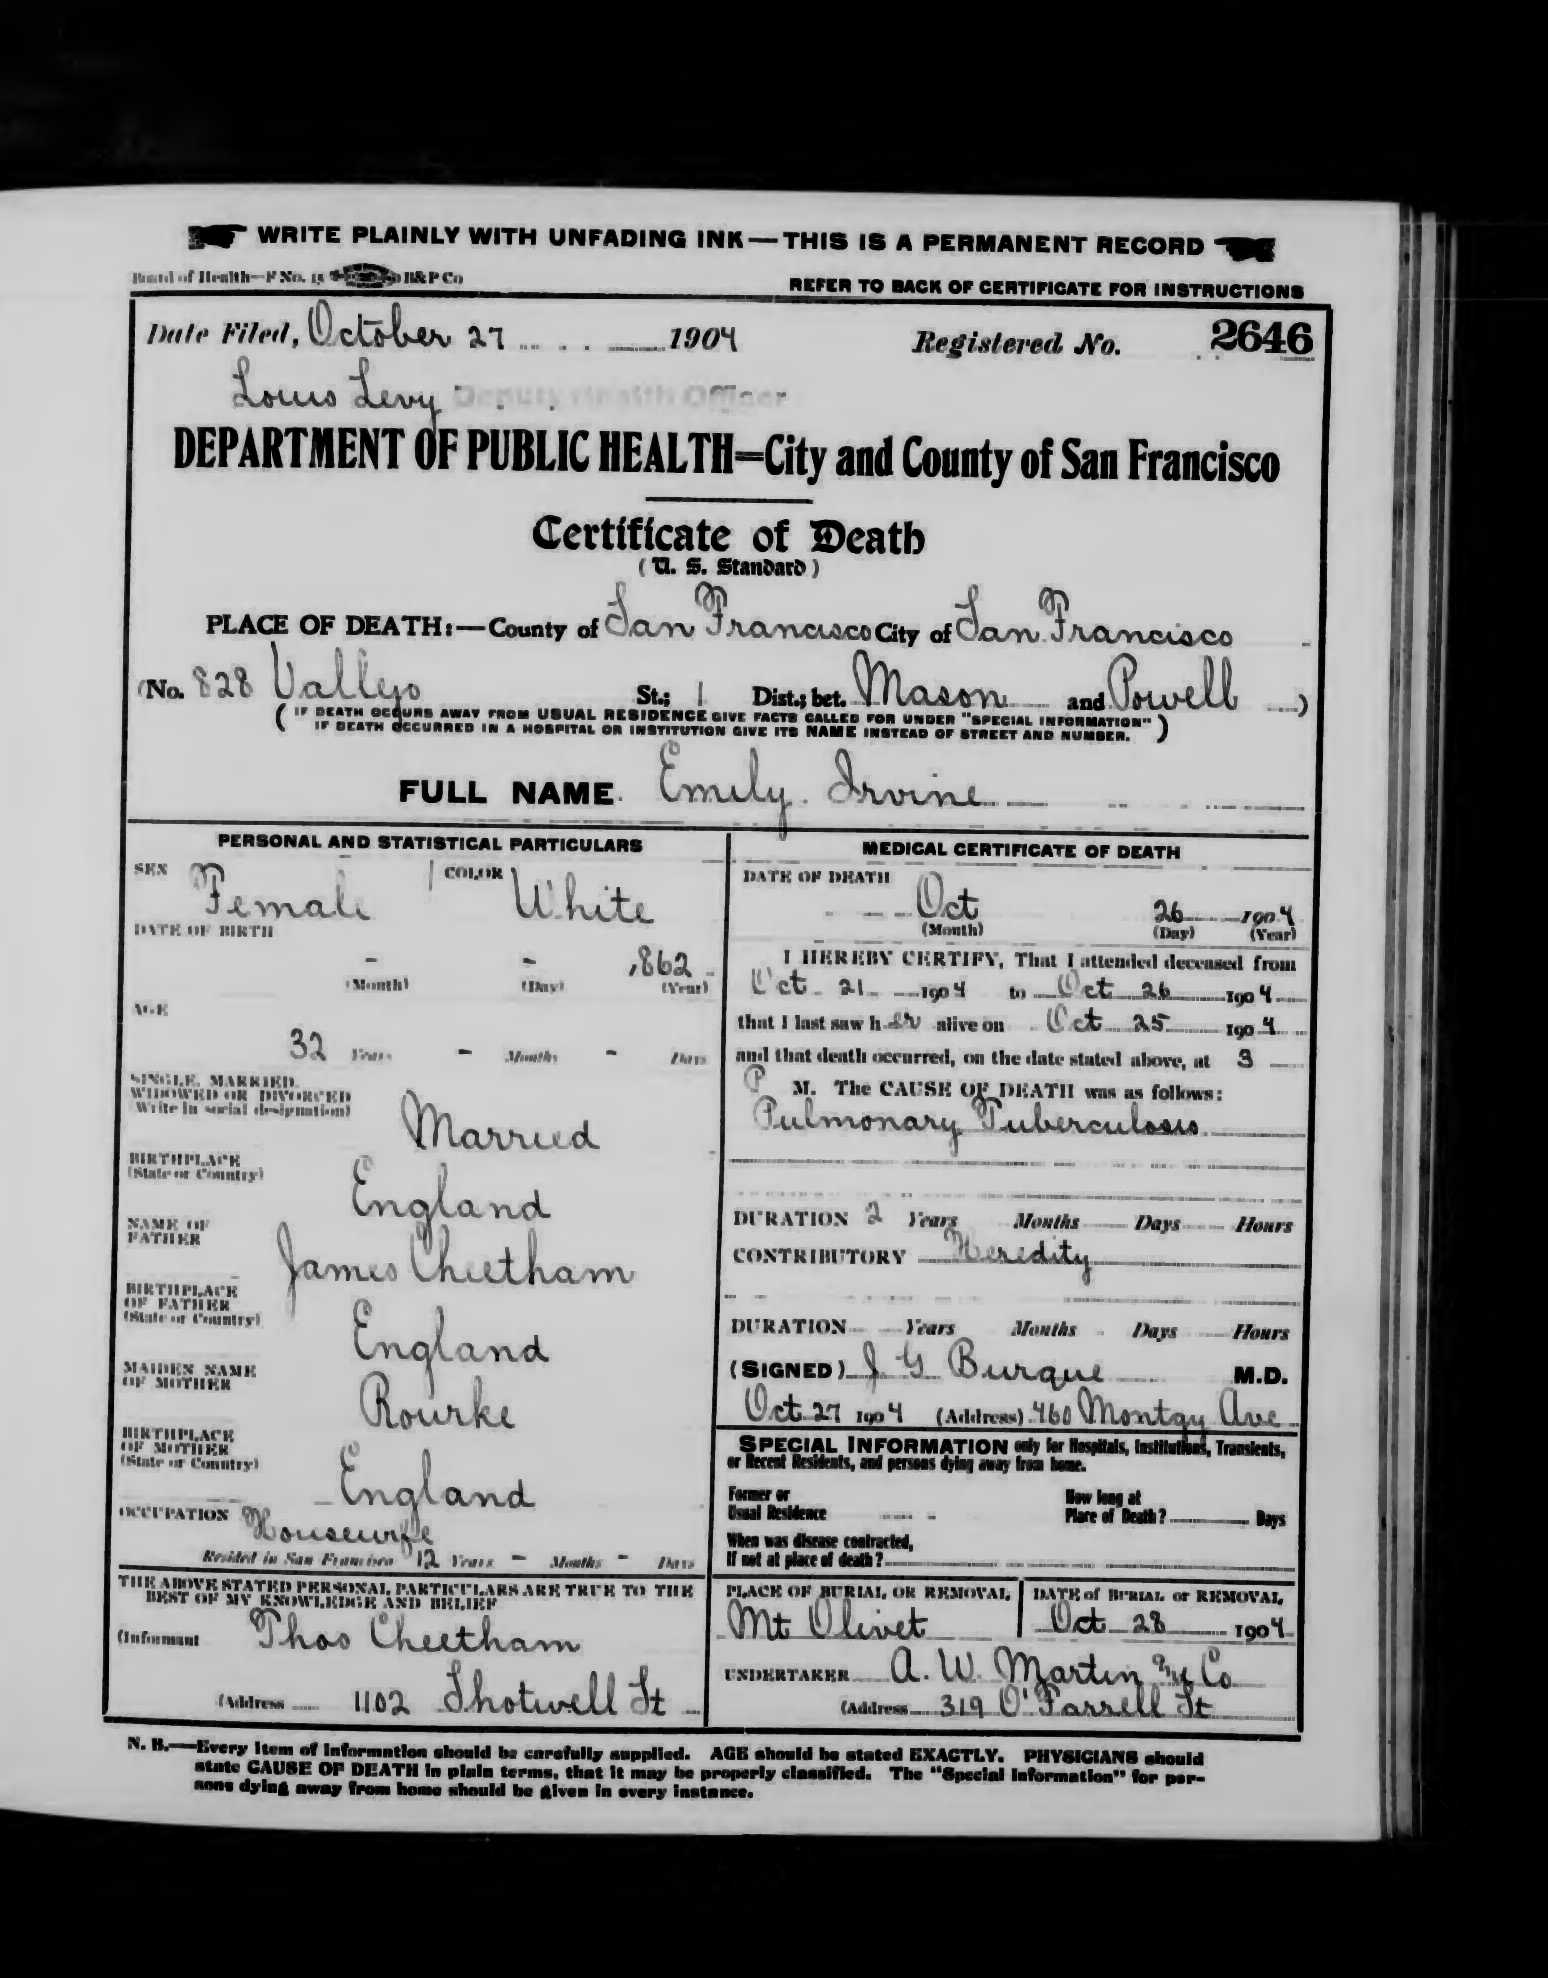 WRITE PLAINLY WITH UNFADING INK—THIS IS A PERMANENT RECORD
Board of Health—F No. 15 B&P Co REFER TO BACK OF CERTIFICATE FOR INSTRUCTIONS
Date Filed, October 27 1904 Registered No. 2646
Louis Levy Deputy Health Officer
DEPARTMENT OF PUBLIC HEALTH=City and County of San Francisco
Certificate of Death
(U. S. Standard)
PLACE OF DEATH:—County of San Francisco City of San Francisco
(No. 828 Vallejo St.; 1 Dist.; bet. Mason and Powell )
( IF DEATH OCCURS AWAY FROM USUAL RESIDENCE GIVE FACTS CALLED FOR UNDER "SPECIAL INFORMATION" )
IF DEATH OCCURRED IN A HOSPITAL OR INSTITUTION GIVE ITS NAME INSTEAD OF STREET AND NUMBER.
FULL NAME Emily Irvine
PERSONAL AND STATISTICAL PARTICULARS
SEX Female COLOR White
DATE OF BIRTH
- - 1862
(Month) (Day) (Year)
AGE
32 Years - Months - Days
SINGLE, MARRIED,
WIDOWED OR DIVORCED
(Write in social designation)
Married
BIRTHPLACE
(State or Country)
England
NAME OF
FATHER
James Cheetham
BIRTHPLACE
OF FATHER
(State or Country)
England
MAIDEN NAME
OF MOTHER
Rourke
BIRTHPLACE
OF MOTHER
(State or Country)
England
OCCUPATION Housewife
Resided in San Francisco 12 Years - Months - Days
THE ABOVE STATED PERSONAL PARTICULARS ARE TRUE TO THE
BEST OF MY KNOWLEDGE AND BELIEF
(Informant Thos Cheetham
(Address 1102 Shotwell St
MEDICAL CERTIFICATE OF DEATH
DATE OF DEATH
Oct 26 1904
(Month) (Day) (Year)
I HEREBY CERTIFY, That I attended deceased from
Oct 21 1904 to Oct 26 1904
that I last saw h er alive on Oct 25 1904
and that death occurred, on the date stated above, at 3
P M. The CAUSE OF DEATH was as follows:
Pulmonary Tuberculosis
DURATION 2 Years Months Days Hours
CONTRIBUTORY Heredity
DURATION Years Months Days Hours
(SIGNED) J G Burque M.D.
Oct 27 1904 (Address) 460 Montgy Ave
SPECIAL INFORMATION only for Hospitals, Institutions, Transients,
or Recent Residents, and persons dying away from home.
Former or
Usual Residence
How long at
Place of Death? Days
When was disease contracted,
If not at place of death?
PLACE OF BURIAL OR REMOVAL DATE of BURIAL or REMOVAL
Mt Olivet Oct 28 1904
UNDERTAKER A. W. Martin & Co
(Address 319 O'Farrell St
N. B.—Every item of information should be carefully supplied. AGE should be stated EXACTLY. PHYSICIANS should
state CAUSE OF DEATH in plain terms, that it may be properly classified. The "Special Information" for per-
sons dying away from home should be given in every instance.